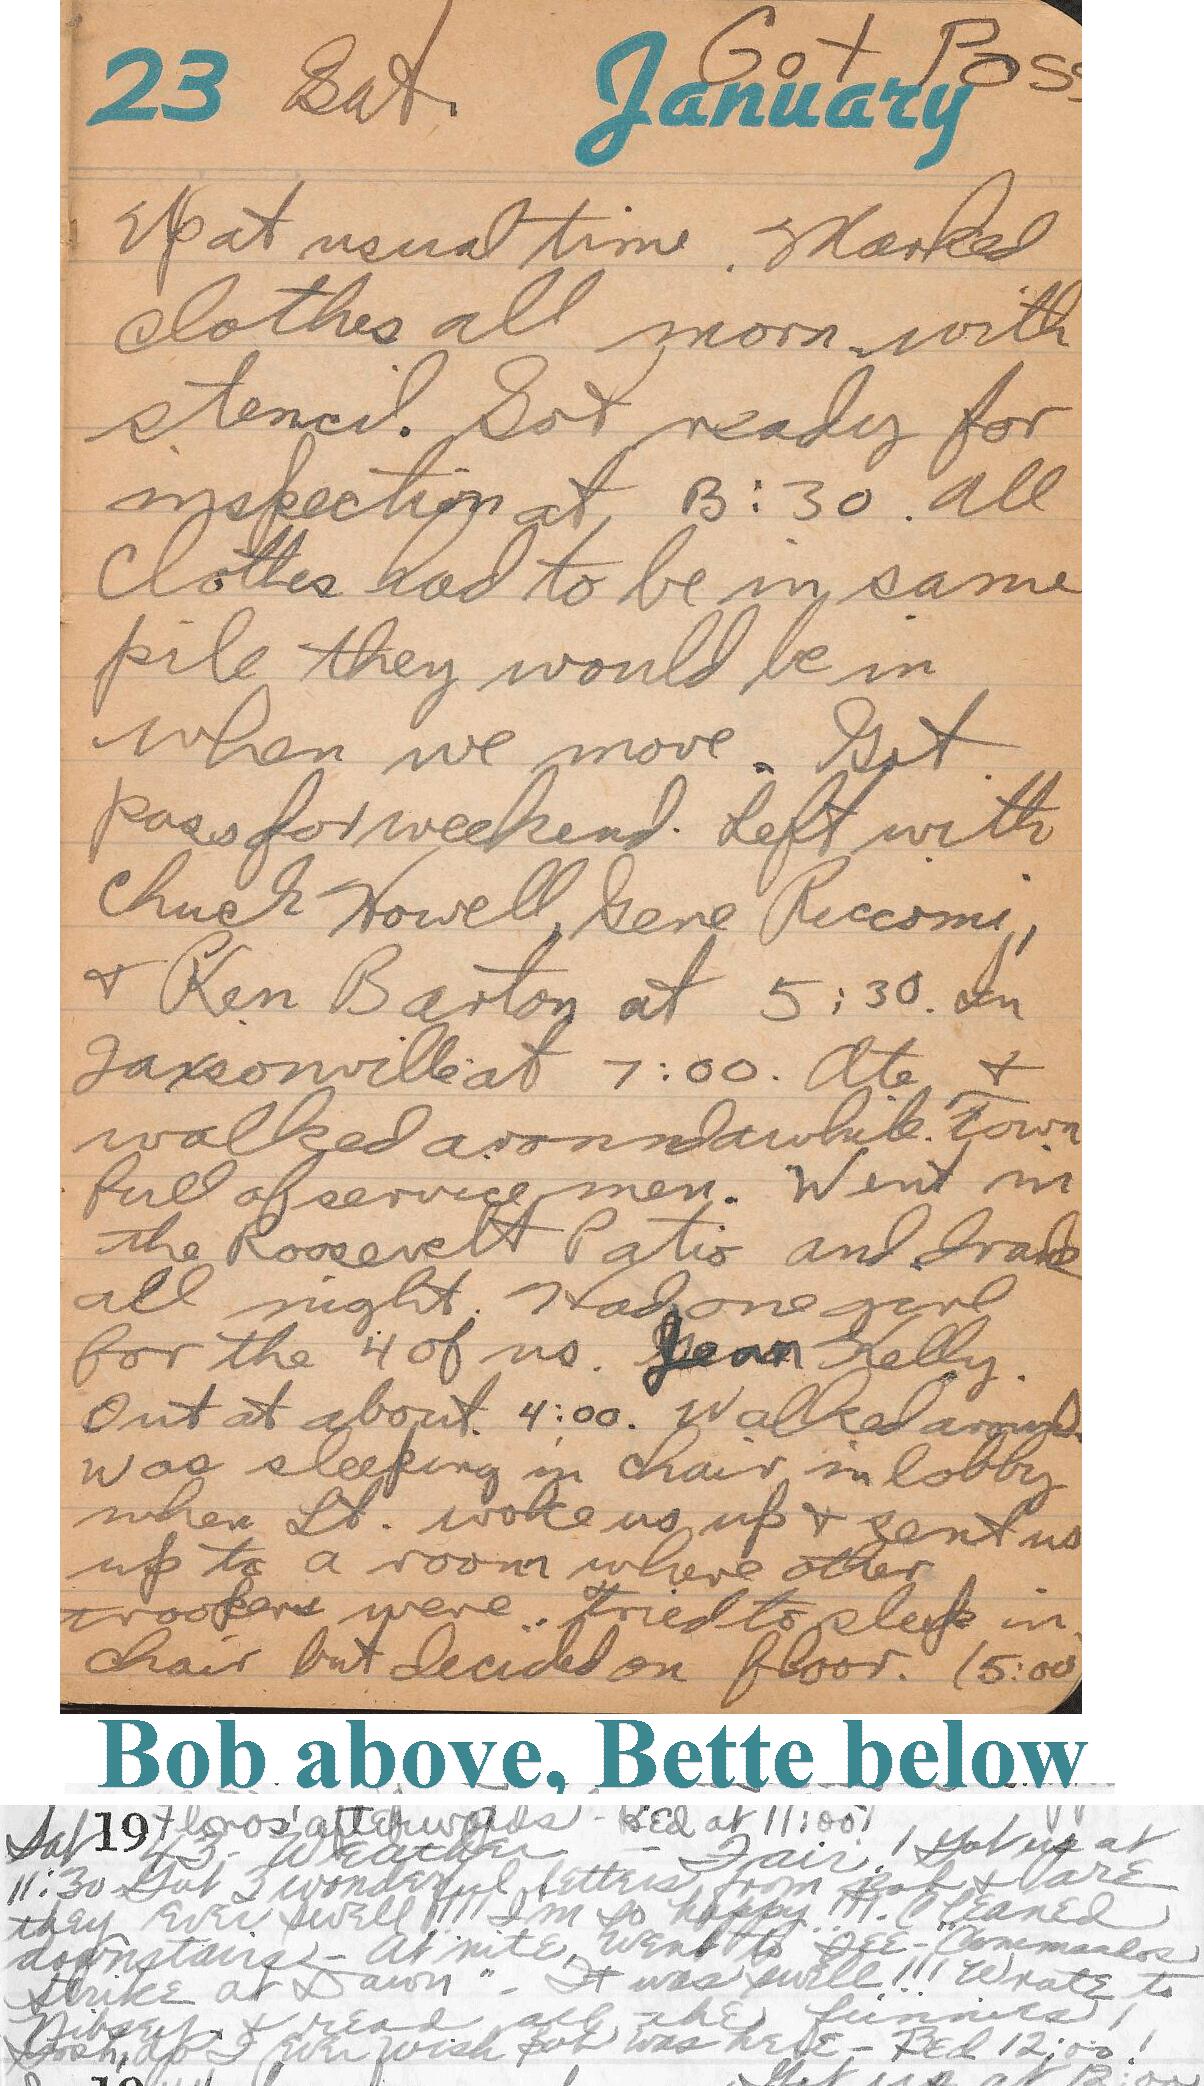 23 Sat. January Got Pass
Up at usual time. Marked
clothes all morn. with
stencil. Got ready for
inspection at B:30. All
Clothes had to be in same
pile they would be in
when we move. Got
pass for weekend. Left with
Chuck Howell, Gene Riccomi,
& Ken Barton at 5:30. In
Jaxsonville at 7:00. Ate &
walked around awhile. Town
full of service men. Went in
the Roosevelt Patio and drank
all night. Had one girl
for the 4 of us. Jean Kelly.
Out at about 4:00. Walked around.
Was sleeping in chair in lobby
when Lt. woke us up & sent us
up to a room where other
troopers were. Tried to sleep in
chair but decided on floor. (5:00)
Bob above, Bette below
Floros' afterwards - Bed at 11:00!
Sat 1943 - Weather - Fair! Got up at
11:30 Got 3 wonderful letters from Bob & are
they ever swell!!!! I'm so happy!!!! Cleaned
downstairs - At nite, went to see - "Commandos
Strike at Dawn" - It was swell!!! Wrote to
& read all the funnies!
Gosh, do I ever wish Bob was here - Bed 12:00!
19 Got up at